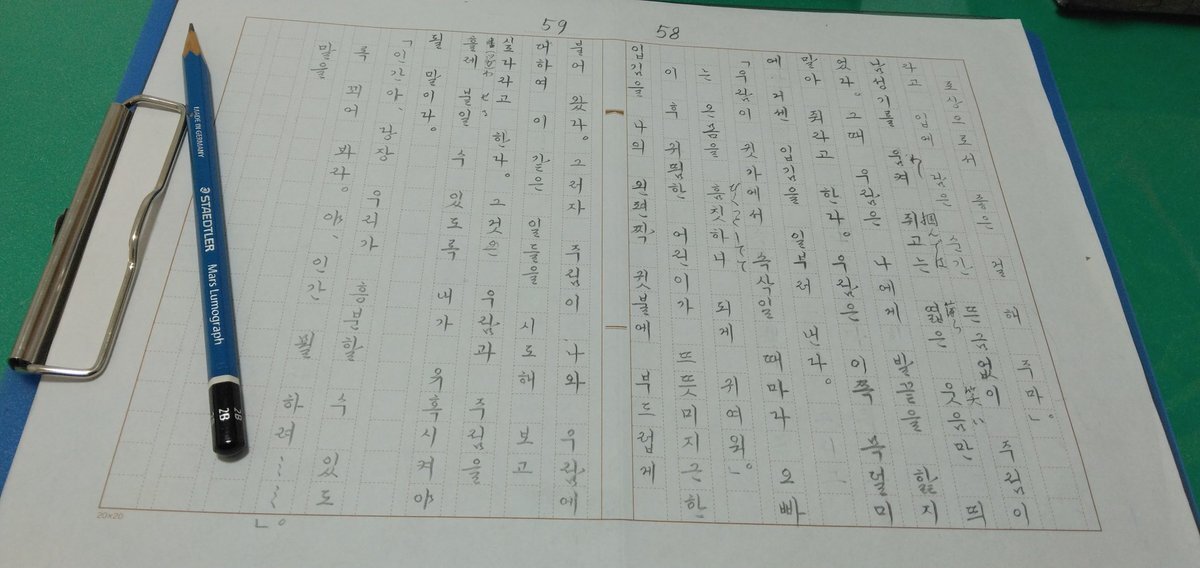 59
58
보상으로서 좋은 걸 해 주마.
라고 입에 담은 순간 뜬금없이 주림이
움켜 쥐고는 짧은 웃음만 띄
었다. 그때 우람은 나에게 발끝을 핥지
말아 줘라고 한다. 우람은 이쪽 목덜미
에 거센 입김을 일부러 낸다.
「우람이 귓가에서 속삭일 때마다 오빠
는 흠칫하니 되게 귀여워.」
이 후 귀띔한 어린이가 뜨뜻미지근한
입김을 나의 왼편짝 귓불에 부드럽게
불어 왔다. 그러자 주림이 나와 우람에
대하여 이 같은 일들을 시도해 보고
싶다라고 한다. 그것은 우람과 주림을
보일 수 있도록 내가 유혹시켜야
될 말이다.
「인간아, 당장 우리가 흥분할 수 있도
록 꾀어 봐라. 야, 인간 하려
말을
20×20
MADE IN GERMANY
STAEDTLER
Mars Lumograph
2B
2B